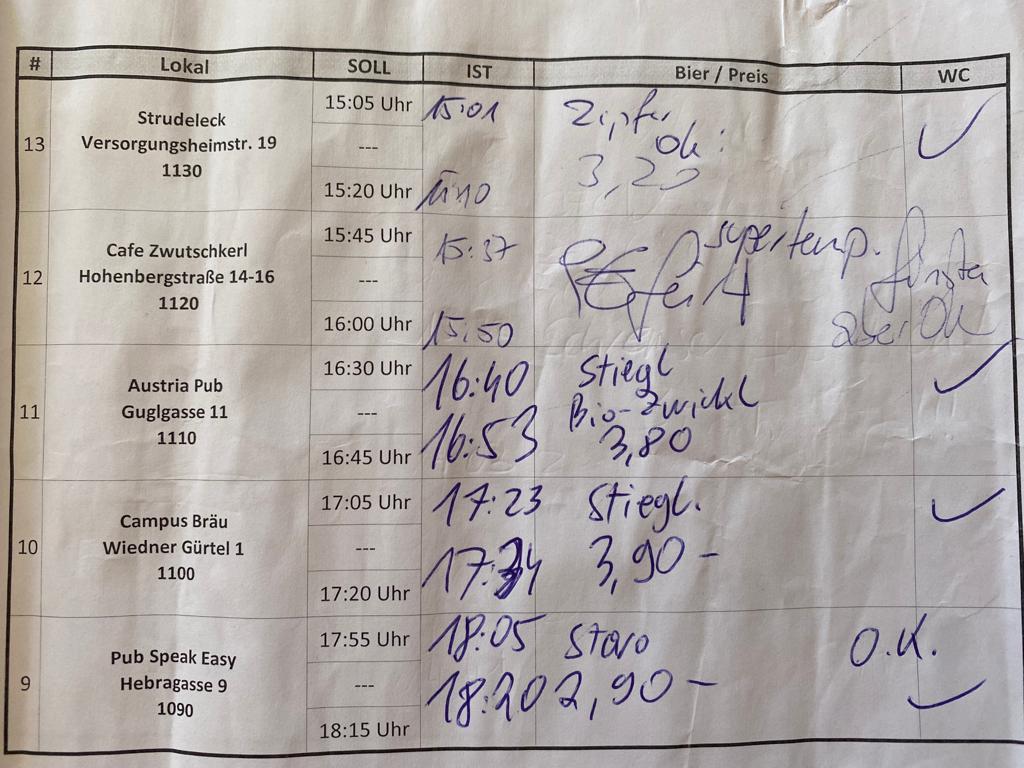 # Lokal SOLL IST Bier / Preis WC
13
Strudeleck
Versorgungsheimstr. 19
1130
15:05 Uhr
---
15:20 Uhr
15:01
Zipfer
Ok:
3,20
12
Cafe Zwutschkerl
Hohenbergstraße 14-16
1120
15:45 Uhr
---
16:00 Uhr
15:37
15:50
super temp.
aber OK
11
Austria Pub
Guglgasse 11
1110
16:30 Uhr
---
16:45 Uhr
16:40
16:53
Stiegl
Bio-Zwickl
3,80
✓
10
Campus Bräu
Wiedner Gürtel 1
1100
17:05 Uhr
---
17:20 Uhr
17:23
17:34
Stiegl.
3,90 –
✓
9
Pub Speak Easy
Hebragasse 9
1090
17:55 Uhr
---
18:15 Uhr
18:05
18:20
Staro
2,90 –
O.K.
✓